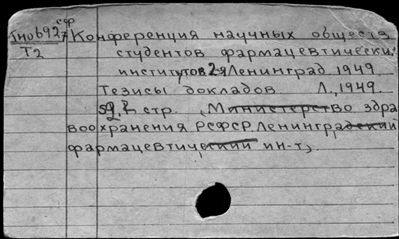 еф
Конференция научных обществ
Т2 студентов фармацевтических
институтов 2-я Ленинград 1949
Тезисы докладов Л., 1949.
стр. (Министерство здра
воохранения РСФСР. Ленинградский
фармацевтический ин-т)